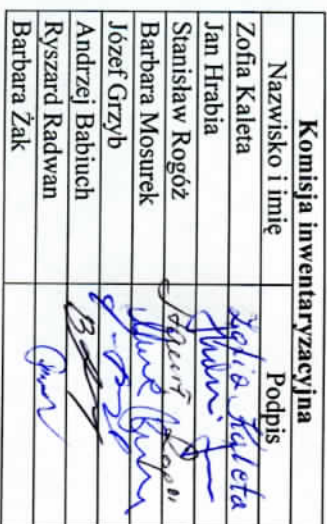 Komisja inwentaryzacyjna
Nazwisko i imię Podpis
Zofia Kaleta Zofia Kaleta
Jan Hrabia
Stanisław Rogóż
Barbara Mosurek
Józef Grzyb
Andrzej Babiuch
Ryszard Radwan
Barbara Żak